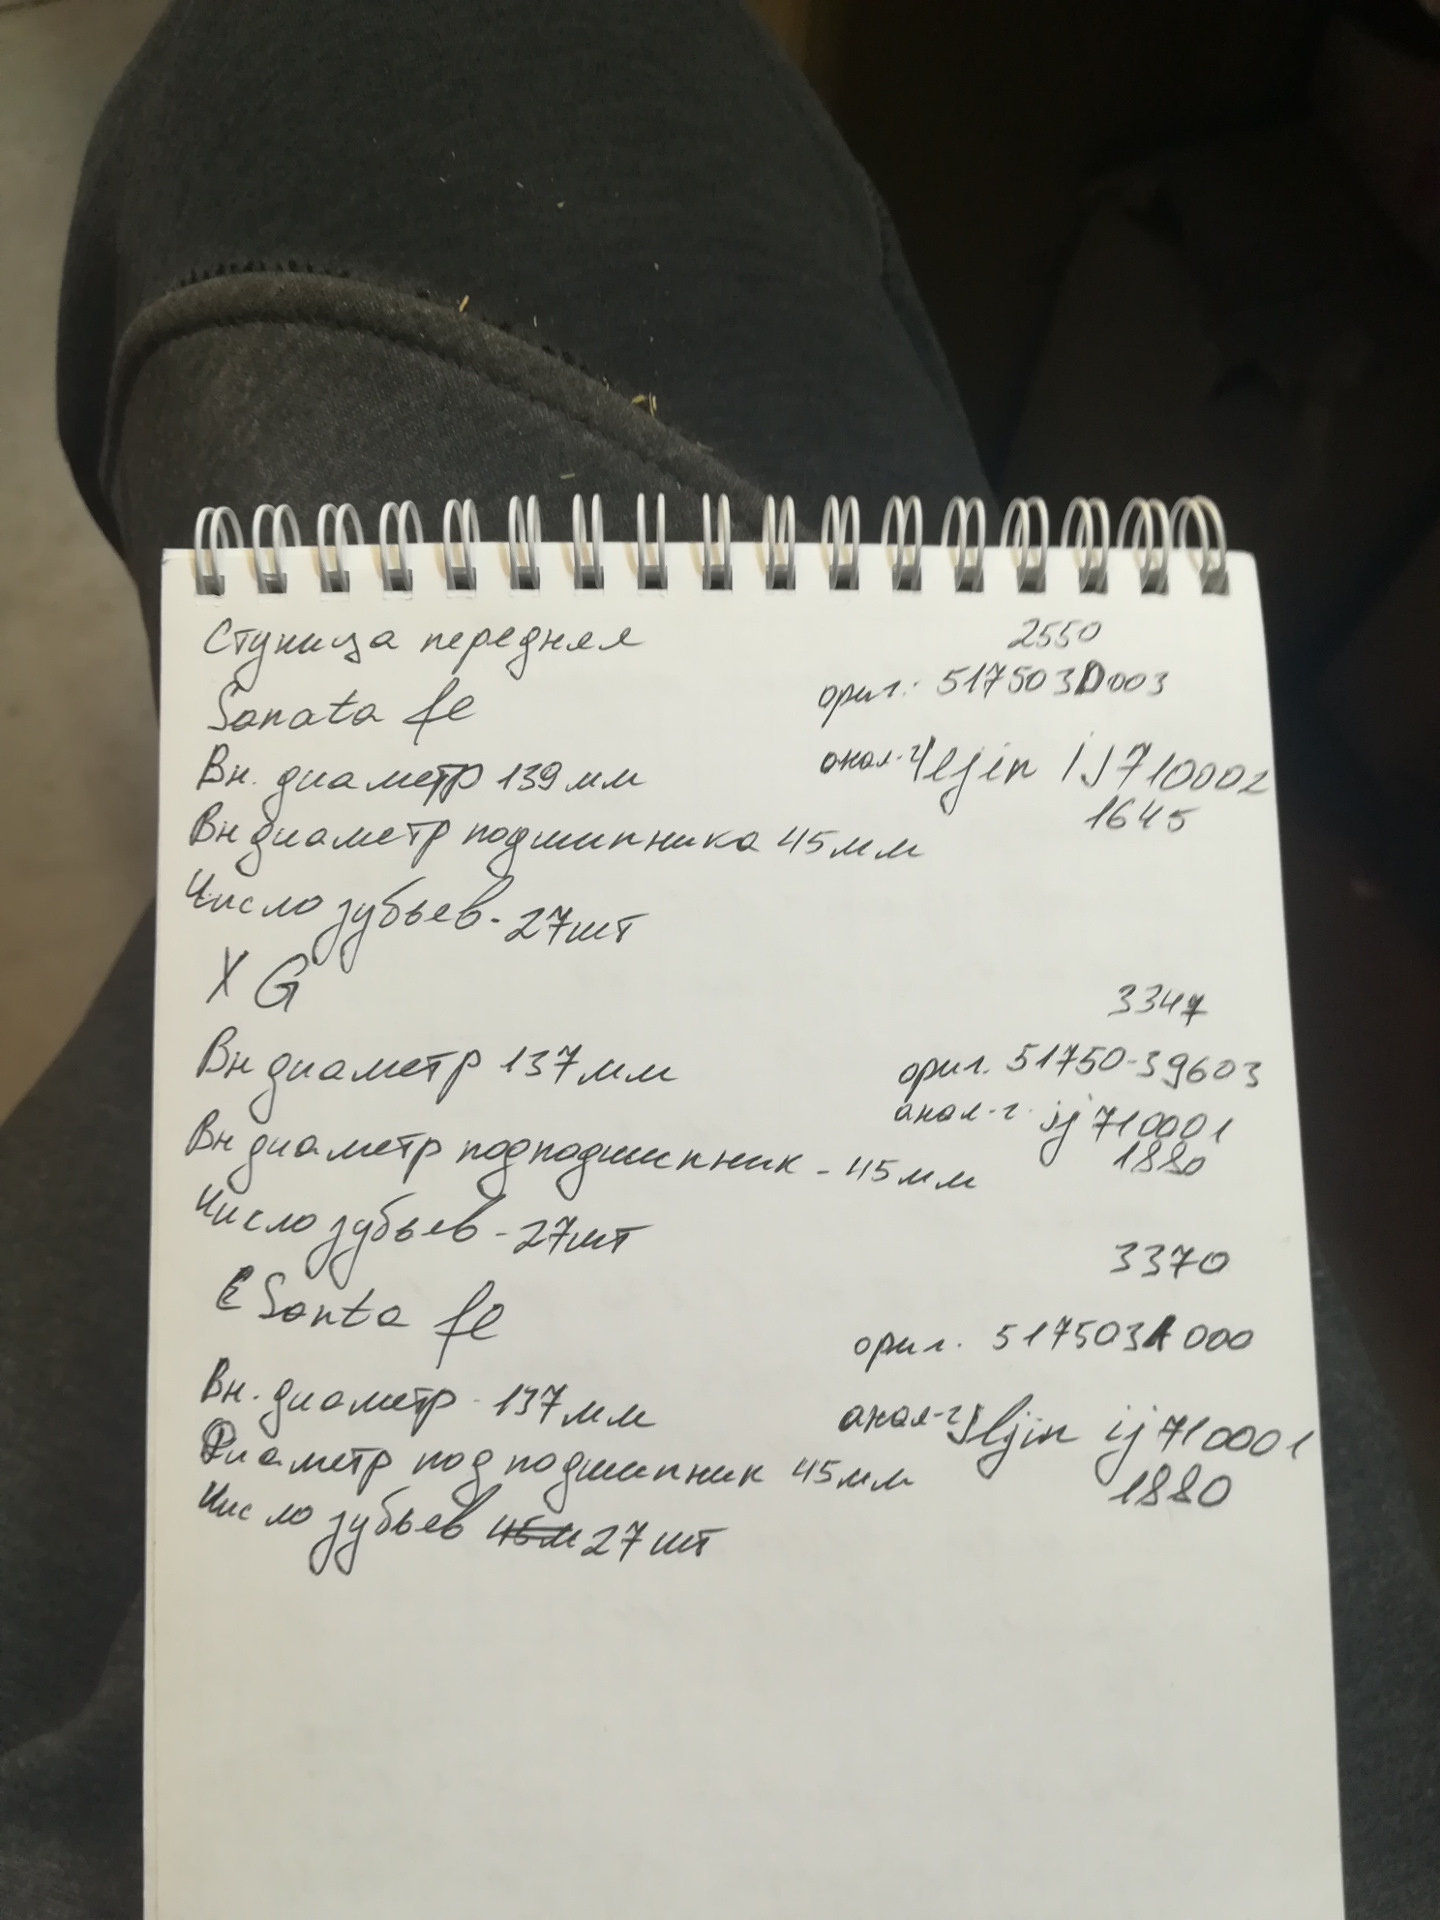 Ступица передняя 2550
Sonata fe ориг.: 517503D003
Вн. диаметр 139мм анал-г Iljin IJ710002
1645
Вн диаметр подшипника 45мм
Число зубьев - 27шт
X G
3347
Вн диаметр 137мм ориг. 51750-39603
анал-г ij710001
Вн диаметр подподшипник - 45мм 1880
Число зубьев - 27шт
3370
Santa fe ориг. 517503A000
Вн. диаметр - 137мм анал-г Iljin ij710001
Диаметр под подшипник 45мм 1880
Число зубьев 27шт